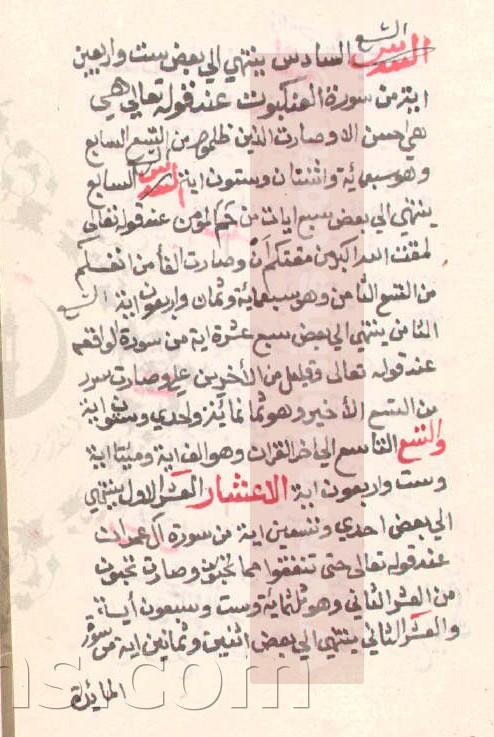 التسع
السدس السادس ينتهي الي بعض ست واربعين
اية من سورة العنكبوت عند قوله تعالى هي
هي احسن الا وصارت الذين ظلموا من التسع السابع
وهو سبعمائة واثنتان وستون اية التسع السدس السابع
ينتهي الي بعض سبع ايات من حم المؤمن عند قوله تعالى
لمقت الله اكبر من مقتكم ان وصارت الفا من انفسكم
من التسع الثامن وهو سبعمائة وثمان واربعون اية التسع
الثامن ينتهي الي بعض سبع عشرة اية من سورة الواقعة
عند قوله تعالى وقليل من الآخرين علي وصارت سرر
من التسع الأخير وهو ثمانمائة واحدي وستون اية
والتسع التاسع الي اخر القران وهو الف اية ومئتا اية
وست واربعون اية الاعشار العشر الاول ينتهي
الي بعض احدي وتسعين اية من سورة آل عمران
عند قوله تعالى حتى تنفقوا مما تحبون وصارت تحبون
من العشر الثاني وهو ثلثمائة وست وسبعون أية
والعشر الثاني ينتهي الي بعض اثنين وثمانين اية من سورة
المائدة
ns.com